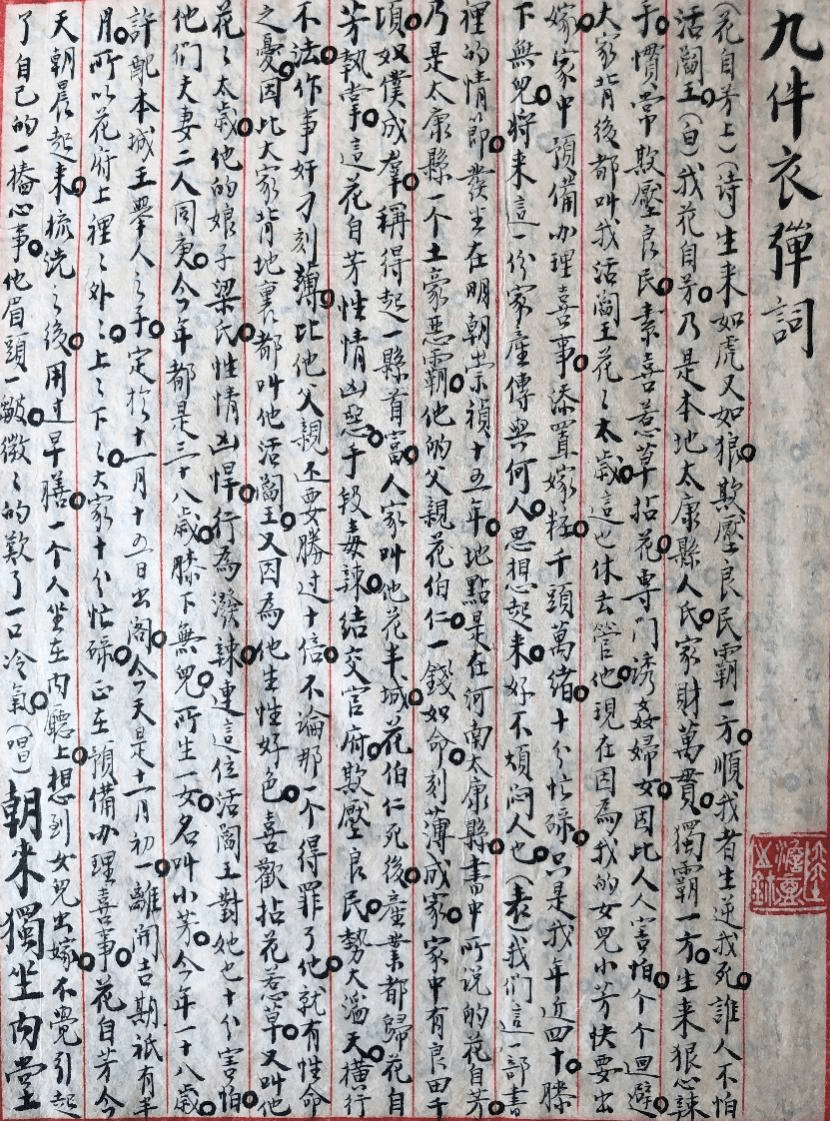 九件衣彈詞
(花自芳上)(诗)生来如虎又如狼欺壓良民霸一方順我者生逆我死誰人不怕
活閻王(白)我花自芳乃是本地太康縣人氏家財萬貫獨霸一方生来狠心辣
手慣常欺壓良民素喜惹草拈花専門誘姦婦女因比人人害怕个个迴避
大家背後都叫我活閻王花々太歲這也休去管他現在因為我的女兒小芳快要出
嫁家中預備办理喜事添置嫁粧千頭萬绪十分忙碌只是我年近四十膝
下無兒将来這一份家産傳與何人思想起来好不煩悶人也(表)我們這一部書
裡的情節發生在明朝崇禎十五年地點是在河南太康縣書中所说的花自芳
乃是太康縣一个土豪惡霸他的父親花伯仁一錢如命刻薄成家家中有良田千
頃奴僕成羣稱得起一縣首富人家叫他花半城花伯仁死後產業都歸花自
芳執掌這花自芳性情凶惡手段毒辣结交官府欺壓良民勢大滔天横行
不法作事奸刁刻薄比他父親还要勝过十倍不論那一个得罪了他就有性命
之憂因比大家背地裏都叫他活閻王又因為他生性好色喜歡拈花惹草又叫他
花々太歲他的娘子梁氏性情凶悍行為潑辣連這位活閻王對她也十分害怕
他們夫妻二人同庚今年都是三十八歲膝下無兒所生一女名叫小芳今年一十八歲
許配本城王舉人之子定於十一月十五日出阁今天是十一月初一離開吉期祇有半
月所以花府上裡々外々上々下々大家十分忙碌正在預備办理喜事花自芳今
天朝晨起来梳洗之後用过早膳一个人坐在内聽上想到女兒出嫁不覺引起
了自己的一樁心事他眉頭一皺微々的歎了一口冷氣(唱)朝来獨坐内堂